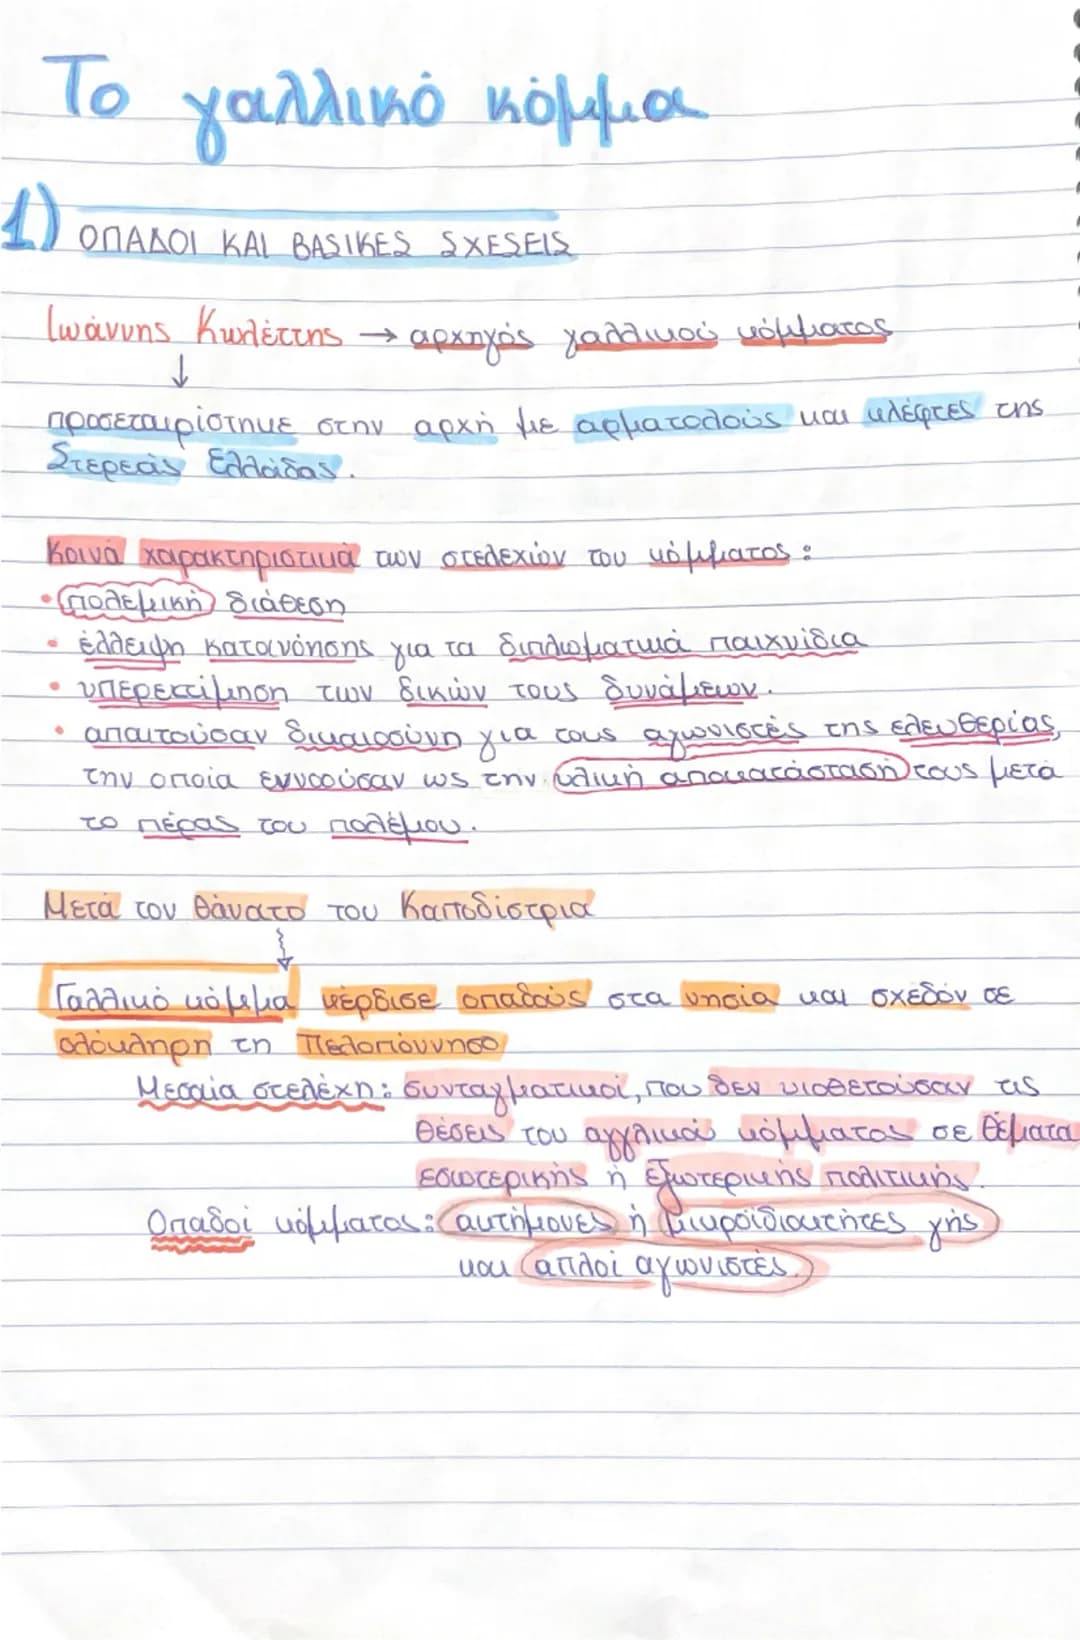 Το γαλλικό κόμμα
1) ΟΠΑΔΟΙ ΚΑΙ ΒΑSΙΚΕS SΧΕSΕΙS
Ιωάννης Κωλέττης → αρχηγός γαλλικού κόμματος
↓
προσεταιρίστηκε στην αρχή με αρματολούς και κλέφτες της
Στερεάς Ελλάδας.
Κοινά χαρακτηριστικά των στελεχών του κόμματος:
• πολεμική διάθεση
• έλλειψη κατανόησης για τα διπλωματικά παιχνίδια
• υπερεκτίμηση των δικών τους δυνάμεων.
• απαιτούσαν δικαιοσύνη για τους αγωνιστές της ελευθερίας,
την οποία εννοούσαν ως την υλική αποκατάσταση τους μετά
το πέρας του πολέμου.
Μετά τον θάνατο του Καποδίστρια
↓
Γαλλικό κόμμα κέρδισε οπαδούς στα νησία και σχεδόν σε
ολόκληρη τη Πελοπόννησο
Μεσαία στελέχη: συνταγματικοί, που δεν υιοθετούσαν τις
θέσεις του αγγλικού κόμματος σε θέματα
εσωτερικής ή εξωτερικής πολιτικής.
Οπαδοί κόμματος: ακτήμονες ή μικροϊδιοκτήτες γής
και απλοί αγωνιστές.